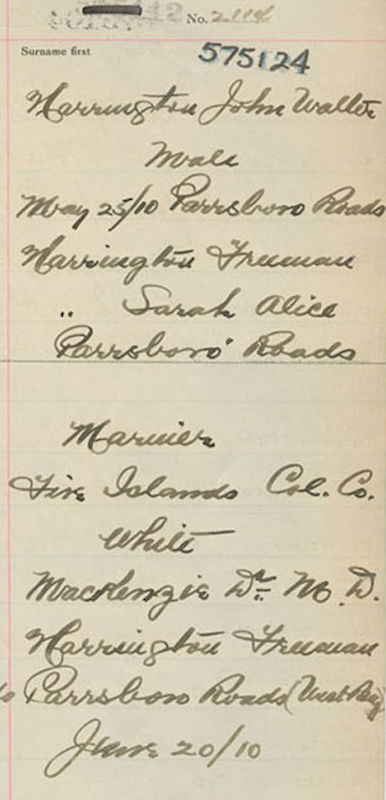 No. 2114
Surname first
575124
Harrington John Walter
Male
May 25/10 Parrsboro Roads
Harrington Freeman
" Sarah Alice
Parrsboro' Roads
Mariner
Five Islands Col. Co.
White
MacKenzie Dr. M. D.
Harrington Freeman
Parrsboro Roads (West Bay)
June 20/10